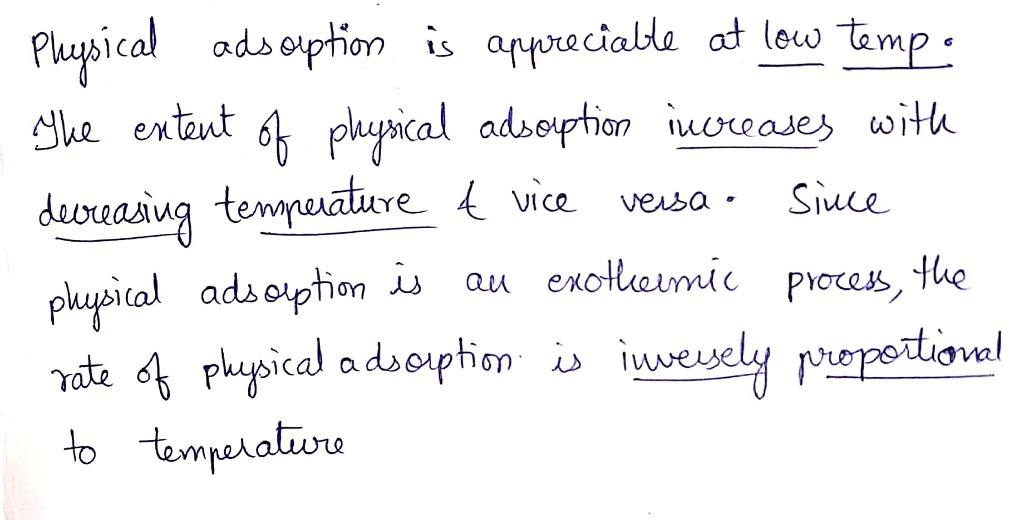 Physical adsorption is appreciable at low temp.
The extent of physical adsorption increases with
decreasing temperature & vice versa. Since
physical adsorption is an exothermic process, the
rate of physical adsorption is inversely proportional
to temperature